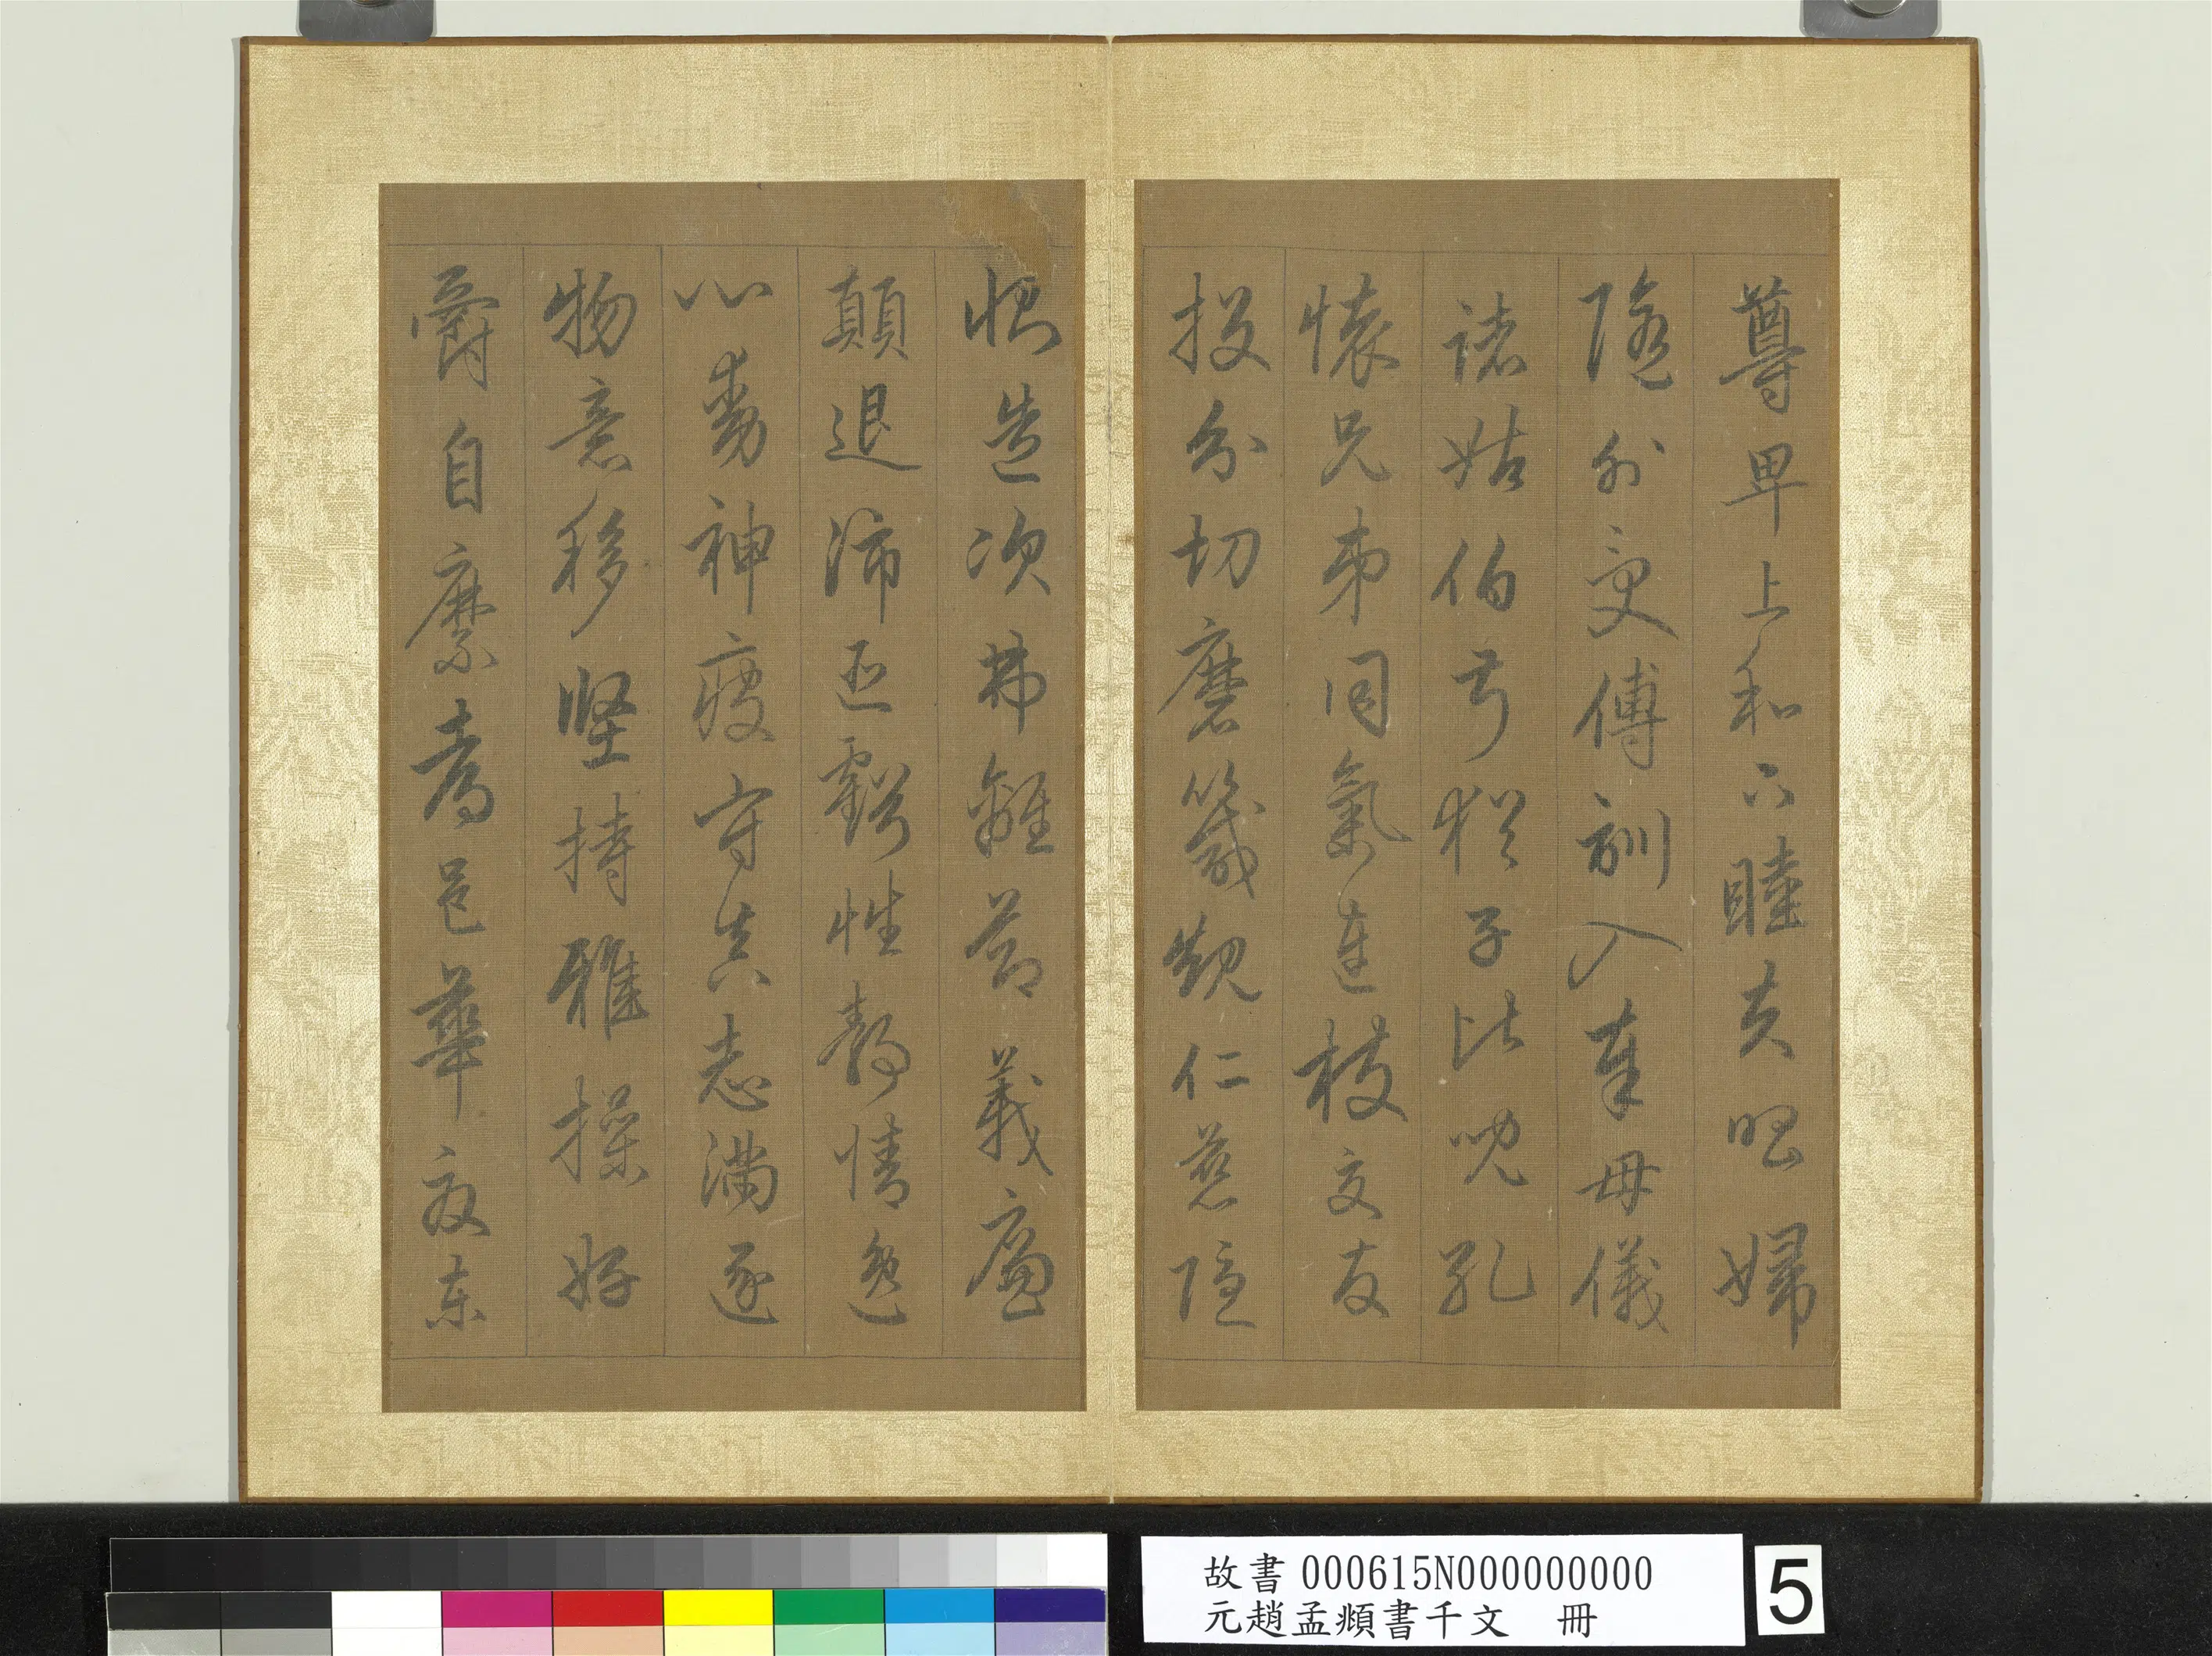 尊卑上和下睦夫唱婦
隨外受傅訓入奉母儀
諸姑伯叔猶子比兒孔
懷兄弟同氣連枝交友
投分切磨箴規仁慈隱
惻造次弗離節義廉
顛退沛匪虧性靜情逸
心動神疲守真志滿逐
物意移堅持雅操好
爵自縻都邑華夏東
故書000615N000000000
元趙孟頫書千文 冊
5